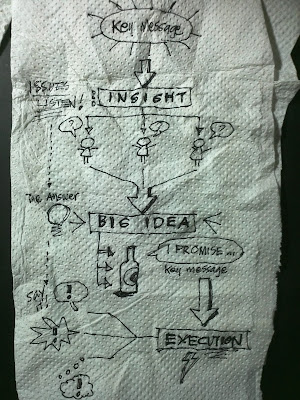 Key Message
ISSUES
LISTEN!
INSIGHT
? ? ?
The Answer
BIG IDEA
I PROMISE...
key message
SAY!
EXECUTION